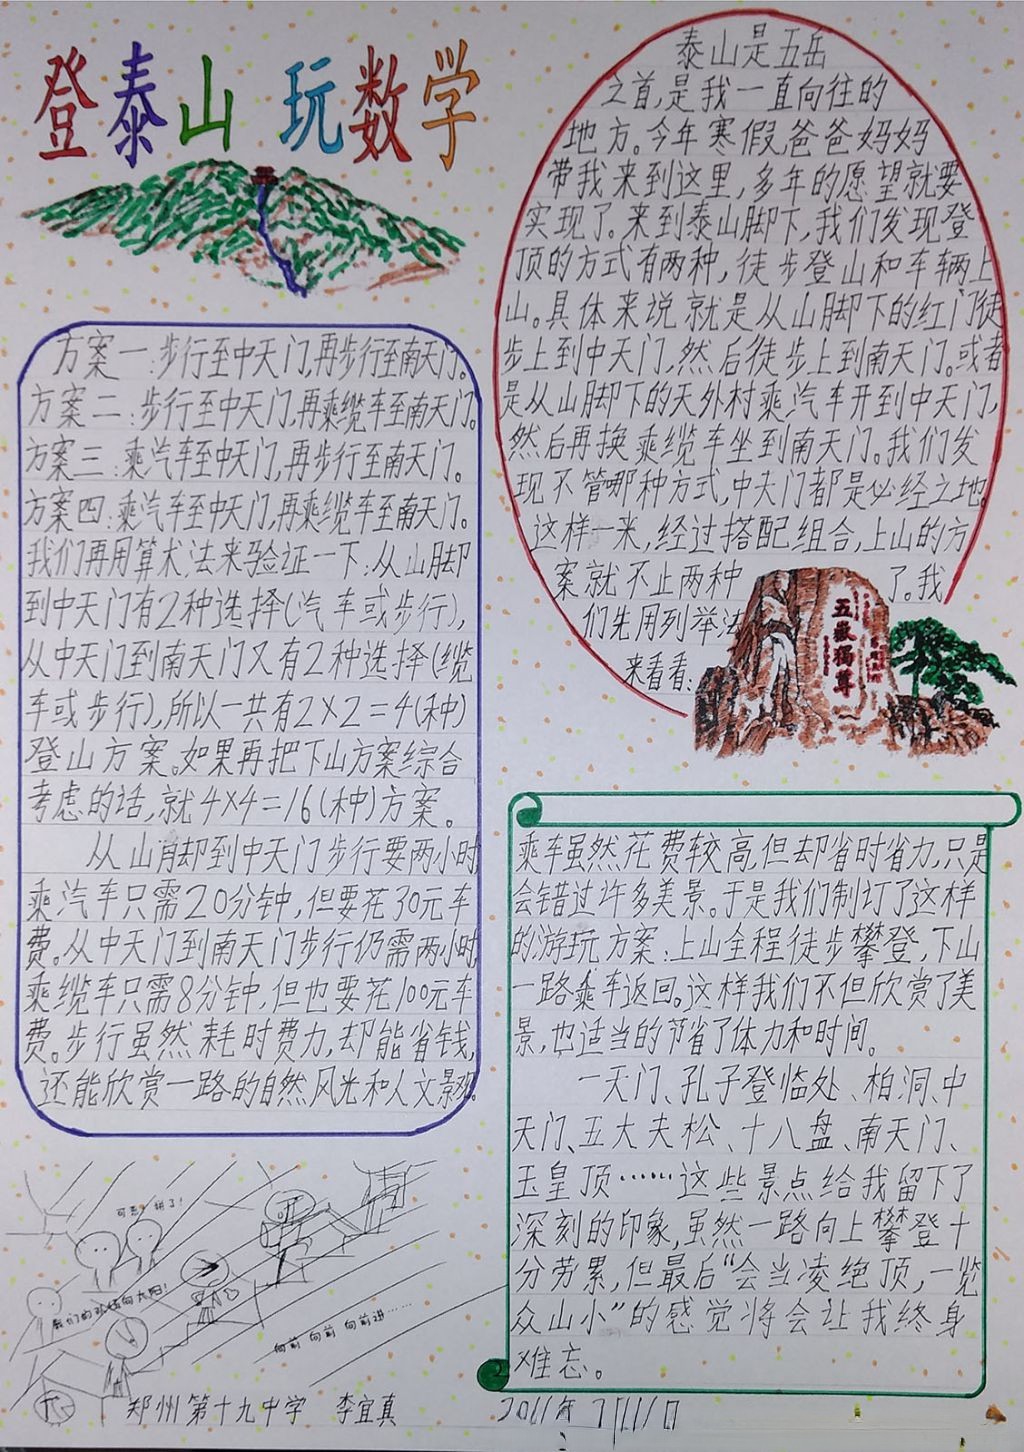 登泰山 玩数学
泰山是五岳
之首,是我一直向往的
地方。今年寒假,爸爸妈妈
带我来到这里,多年的愿望就要
实现了。来到泰山脚下,我们发现登
顶的方式有两种,徒步登山和车辆上
山。具体来说就是从山脚下的红门徒
步上到中天门,然后徒步上到南天门。或者
是从山脚下的天外村乘汽车开到中天门,
然后再换乘缆车坐到南天门。我们发
现不管哪种方式,中天门都是必经之地。
这样一来,经过搭配组合,上山的方
案就不止两种了。我
们先用列举法
来看看:
五岳独尊
方案一:步行至中天门,再步行至南天门。
方案二:步行至中天门,再乘缆车至南天门。
方案三:乘汽车至中天门,再步行至南天门。
方案四:乘汽车至中天门,再乘缆车至南天门。
我们再用算术法来验证一下:从山脚
到中天门有2种选择(汽车或步行),
从中天门到南天门又有2种选择(缆
车或步行),所以一共有2×2=4(种)
登山方案。如果再把下山方案综合
考虑的话,就4×4=16(种)方案。
从山脚到中天门步行要两小时
乘汽车只需20分钟,但要花30元车
费。从中天门到南天门步行仍需两小时,
乘缆车只需8分钟,但也要花100元车
费。步行虽然耗时费力,却能省钱,
还能欣赏一路的自然风光和人文景观。
乘车虽然花费较高,但却省时省力,只是
会错过许多美景。于是我们制订了这样
的游玩方案:上山全程徒步攀登,下山
一路乘车返回。这样我们不但欣赏了美
景,也适当的节省了体力和时间。
一天门、孔子登临处、柏洞、中
天门、五大夫松、十八盘、南天门、
玉皇顶……这些景点给我留下了
深刻的印象,虽然一路向上攀登十
分劳累,但最后“会当凌绝顶,一览
众山小”的感觉将会让我终身
难忘。
可恶!拼了!
我们的队伍向太阳!
向前 向前 向前进……
郑州第十九中学 李宜真